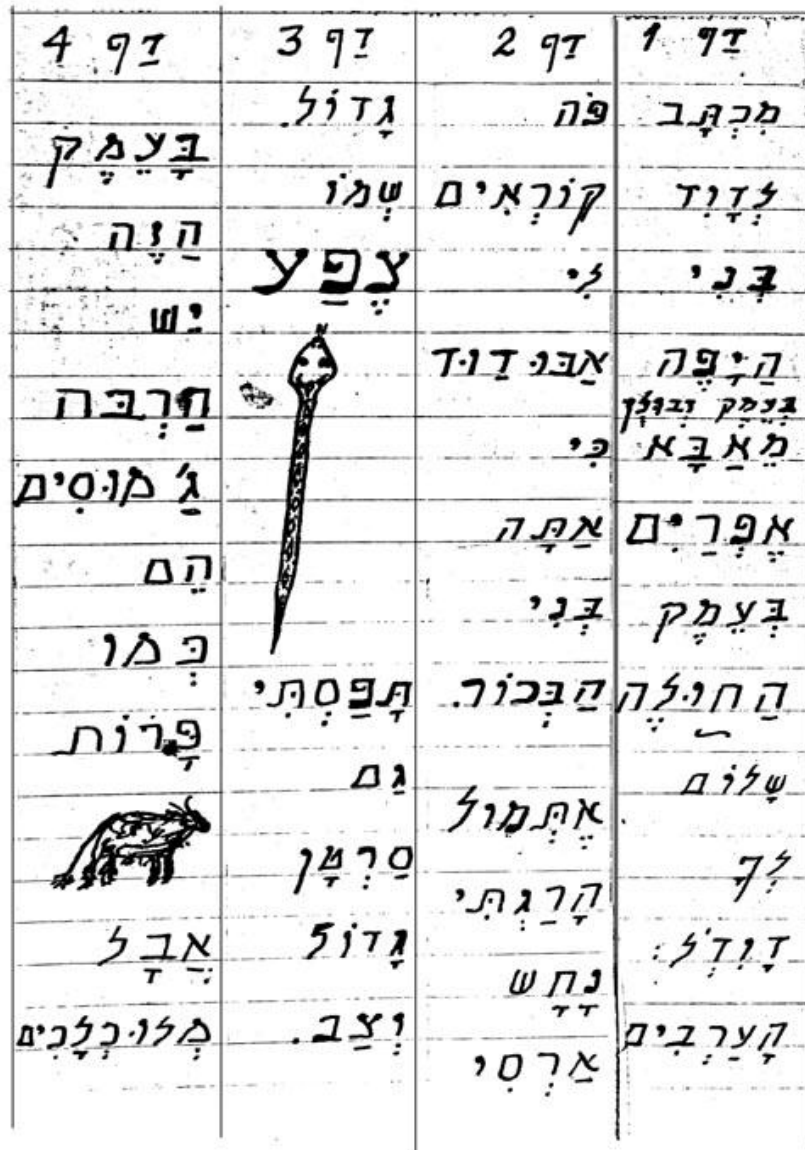 דַף 1
מִכְתָּב
לְדָוִד
בְּנִי
הַיָּפֶה
בְּעֵמֶק
מֵאַבָּא
אֶפְרַיִם
בְּעֵמֶק
הַחוּלֶה
שָׁלוֹם
לְךָ
דָוִדְל:
הָעַרְבִים
דַף 2
פֹּה
קוֹרְאִים
לִי
אַבּוּ דַוּד
כִּי
אַתָּה
בְּנִי
הַבְּכוֹר.
אֶתְמוֹל
הָרַגְתִּי
נָחָש
אַרְסִי
דַף 3
גָדוֹל.
שְמוֹ
צֶפַע
תָּפַסְתִּי
גַם
סַרְטָן
גָדוֹל
וְצַב.
דַף 4
בָּעֵמֶק
הַזֶה
יֵש
הַרְבֵּה
גַ'מוּסִים
הֵם
כְּמוֹ
פָּרוֹת
אֲבָל
מְלוּכְלָכִים